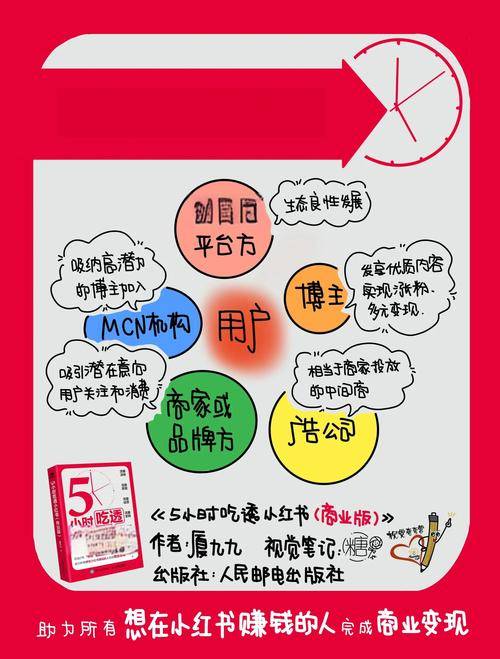 平台方
生态良性发展
吸纳高潜力
的博主加入
MCN机构
用户
博主
发章优质内容
实现涨粉、
多元变现
吸引潜在意向
用户关注和消费
商家或
品牌方
相当于商家投放
的中间商
广告公司
5
小时吃透
《5小时吃透小红书(商业版)》
作者:厦九九 视觉笔记:
出版社:人民邮电出版社
助力所有想在小红书赚钱的人完成商业变现